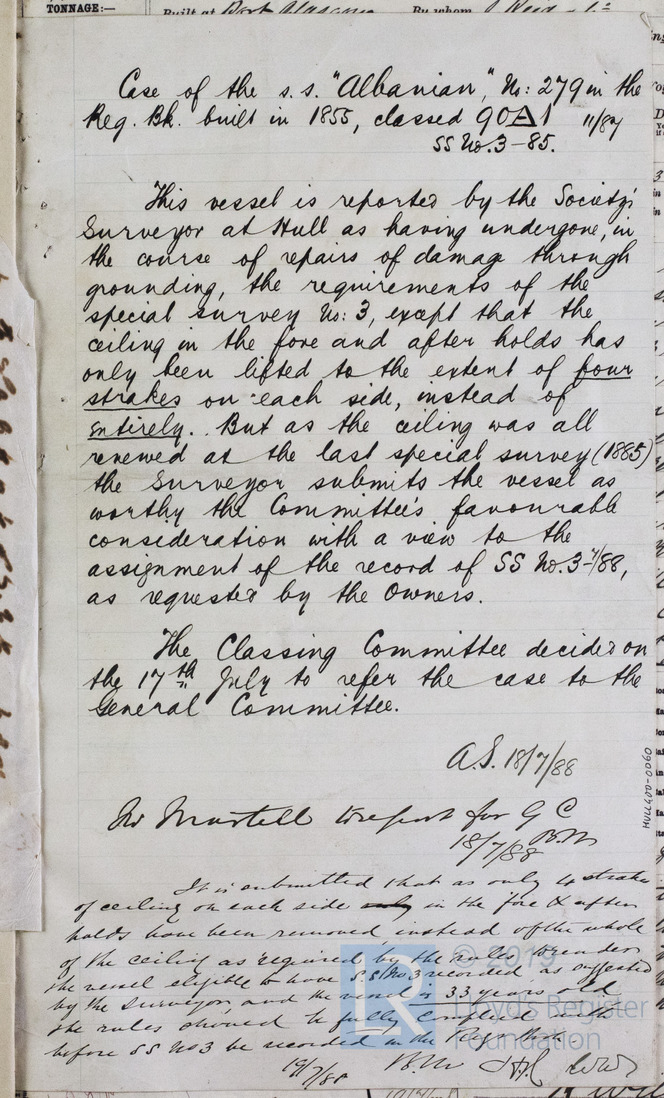 TONNAGE:— Built at Port Glasgow By whom J Reid
Case of the s.s. "Albanian," No: 279 in the
Reg. Bk. built in 1855, classed 90A1 11/87
SS No. 3-85.
This vessel is reported by the Society's
Surveyor at Hull as having undergone, in
the course of repairs of damage through
grounding, the requirements of the
special survey No: 3, except that the
ceiling in the fore and after holds has
only been lifted to the extent of four
strakes on each side, instead of
entirely. But as the ceiling was all
renewed at the last special survey (1885)
the Surveyor submits the vessel as
worthy the Committee's favourable
consideration with a view to the
assignment of the record of SS No. 3-7/88,
as requested by the Owners.
The Classing Committee decided on
the 17th July to refer the case to the
General Committee.
A.S. 18/7/88
HULL400-0060
Mr Martell to report for G C
18/7/88 B.M
It is submitted that as only 4 strakes
of ceiling on each side only in the fore & after
holds have been removed, instead of the whole
of the ceiling as required by the rules to render
the vessel eligible to have S.S. No 3 recorded as suggested
by the Surveyor, and the vessel is 33 years old
the rules should be fully complied with
before SS No 3 be recorded in the Reg. Book
19/7/88 B.M.
© 2019
Lloyd's Register
Foundation
LR